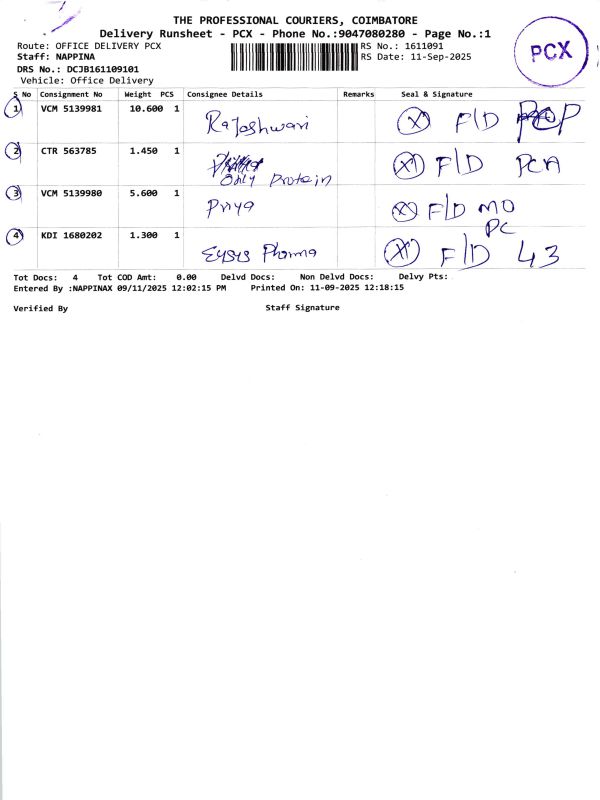 THE PROFESSIONAL COURIERS, COIMBATORE
Delivery Runsheet - PCX - Phone No.:9047080280 - Page No.:1
Route: OFFICE DELIVERY PCX
RS No.: 1611091
Staff: NAPPINA
RS Date: 11-Sep-2025
DRS No.: DCJB161109101
Vehicle: Office Delivery
PCX
S No Consignment No Weight PCS Consignee Details Remarks Seal & Signature
1 VCM 5139981 10.600 1 Rajeshwari (X) F/D
2 CTR 563785 1.450 1 Only Protein (X) F/D PCA
3 VCM 5139980 5.600 1 Priya (X) F/D MO
PC
4 KDI 1680202 1.300 1 Pharma (X) F/D 43
Tot Docs: 4 Tot COD Amt: 0.00 Delvd Docs: Non Delvd Docs: Delvy Pts:
Entered By :NAPPINAX 09/11/2025 12:02:15 PM Printed On: 11-09-2025 12:18:15
Verified By Staff Signature